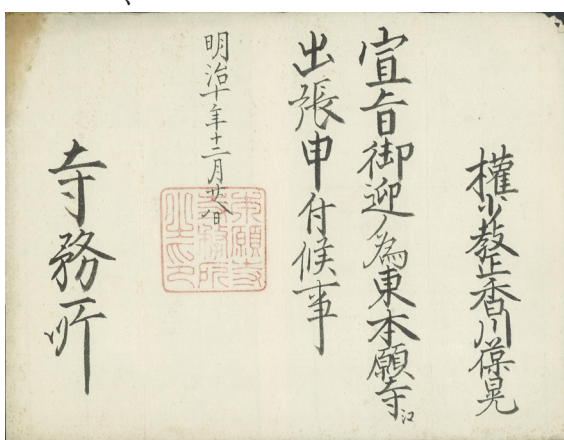 權少教正香川葆晃
宣旨御迎ノ為東本願寺江
出張申付候事
明治十年十二月廿八日
寺務所
本願寺
寺務所
之印